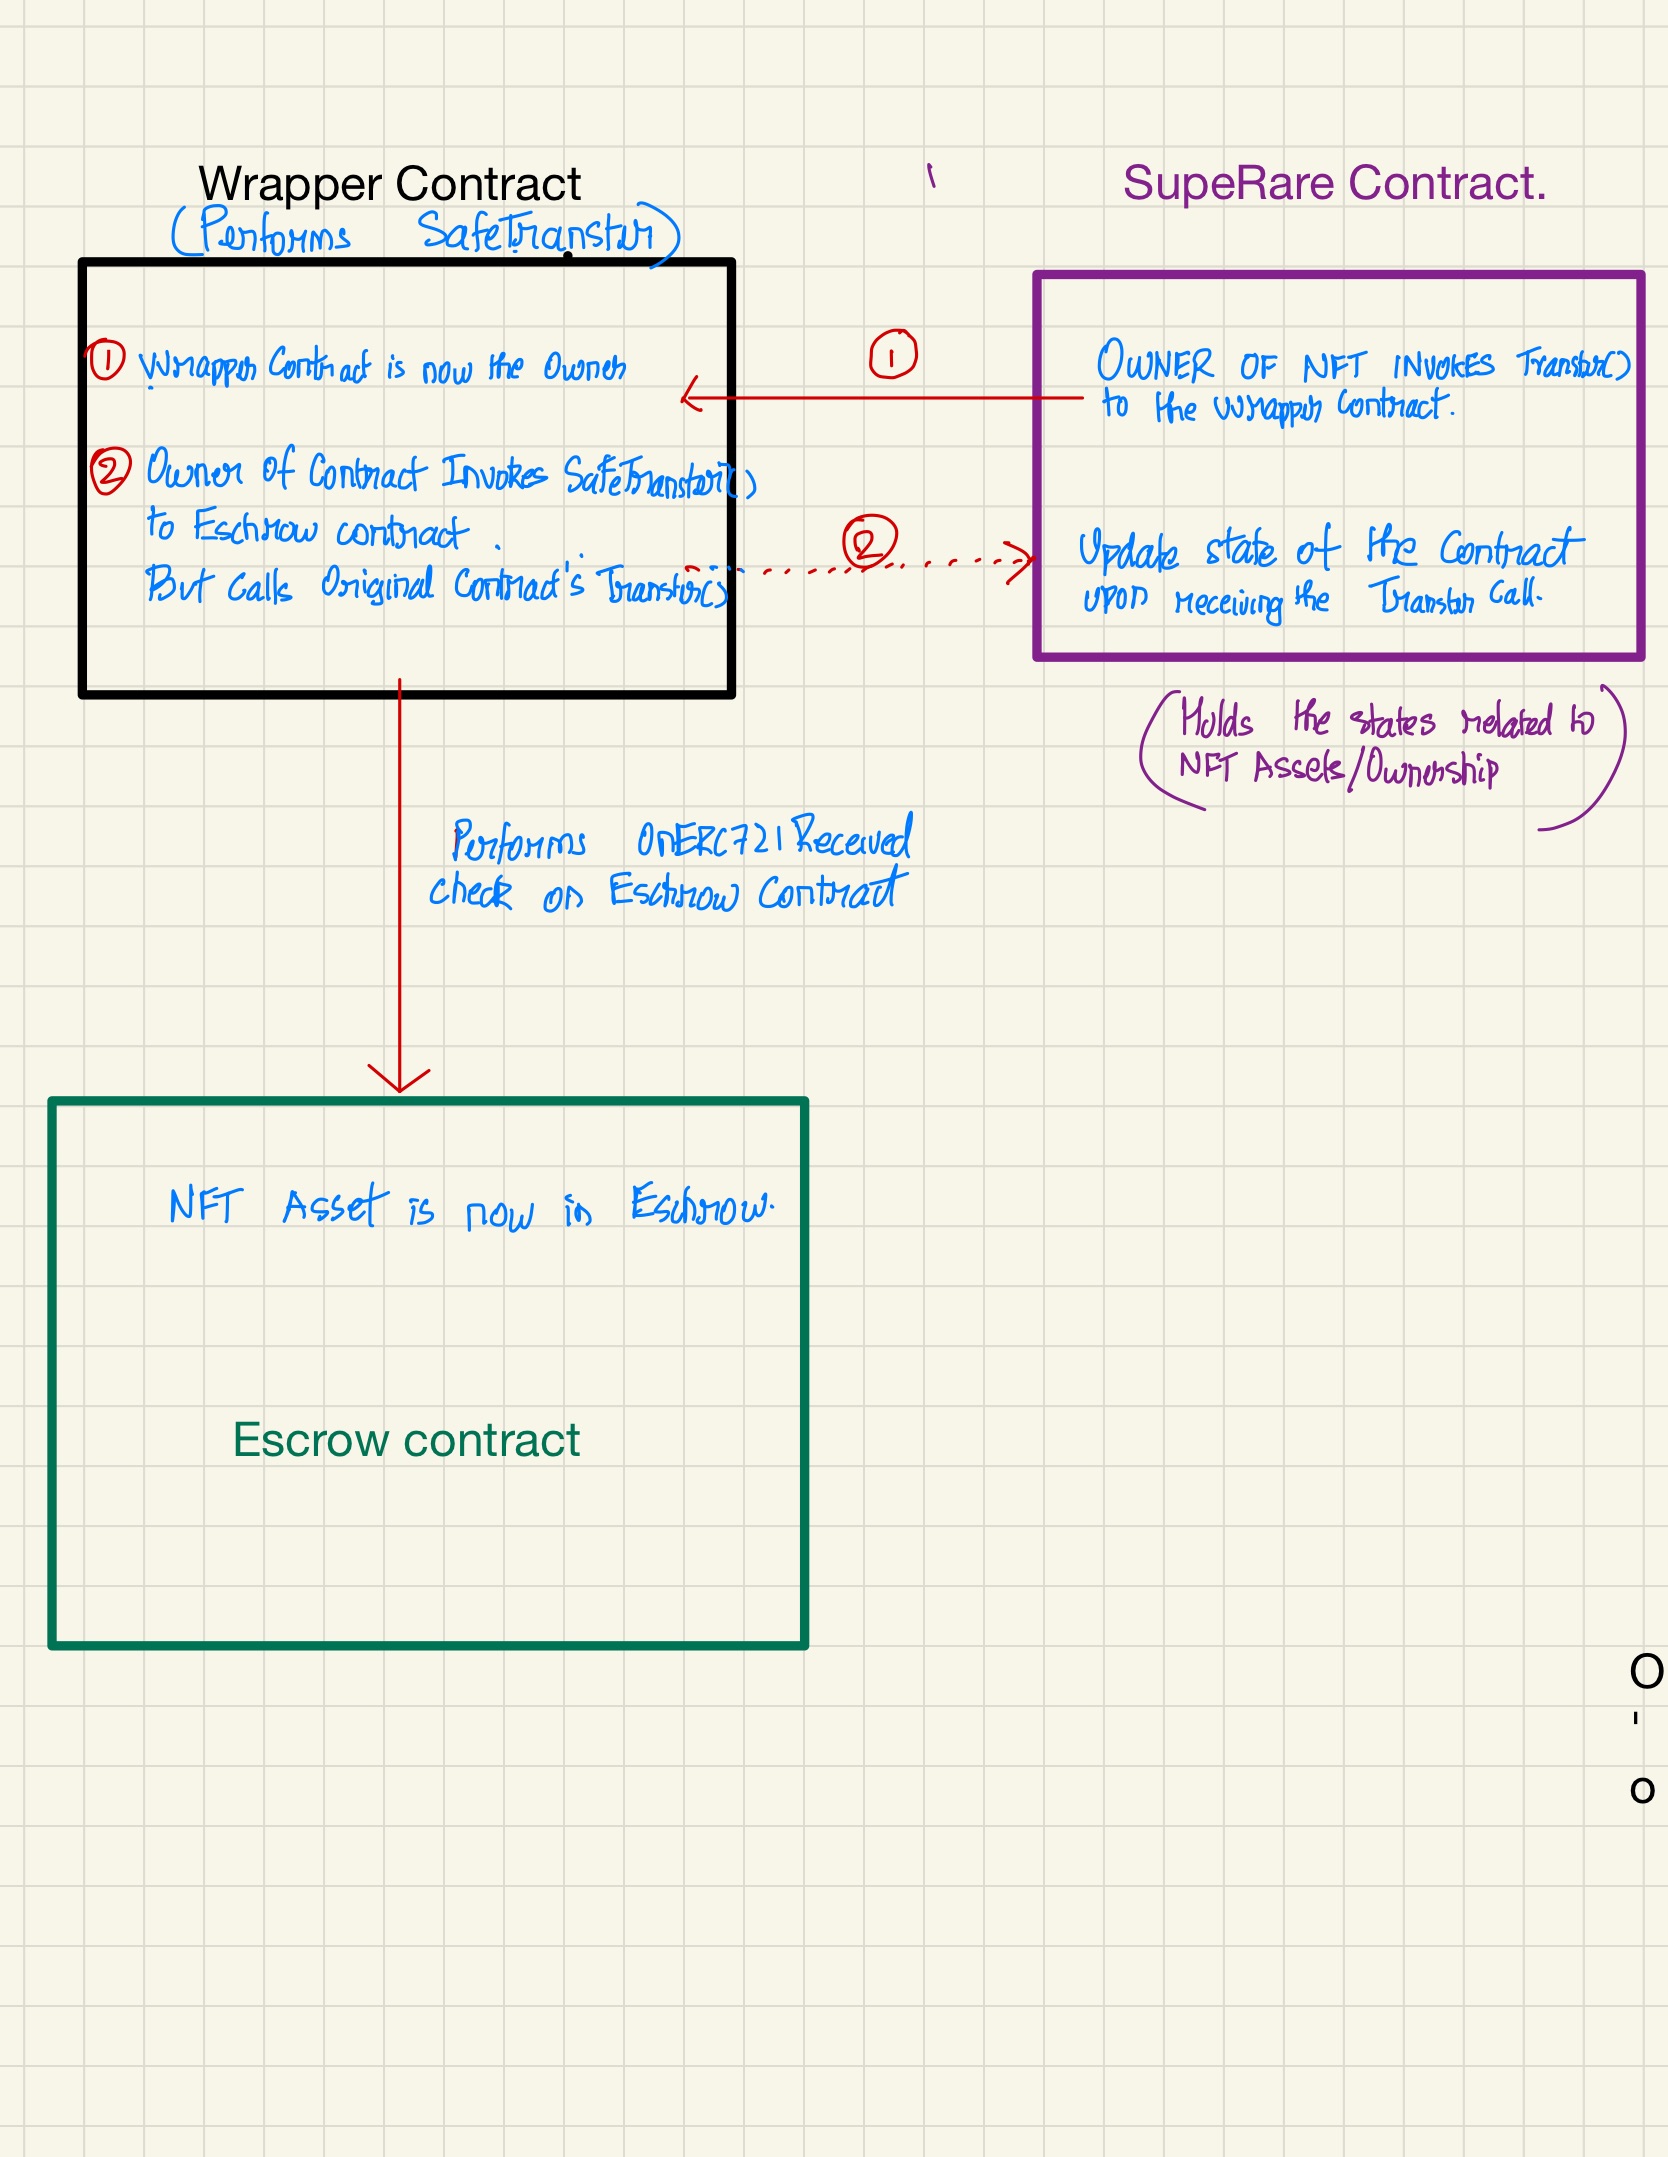 Wrapper Contract
(Performs SafeTransfer)
SupeRare Contract.
① Wrapper Contract is now the Owner
② Owner Of Contract Invokes SafeTransfer()
to Eschrow contract.
But Calls Original Contract's Transfer()
①
②
OWNER OF NFT INVOKES Transfer()
to the Wrapper Contract.
Update state of the Contract
upon receiving the Transfer Call.
(Holds the states related to
NFT Assets/Ownership)
Performs OnERC721Received
check on Eschrow Contract
NFT Asset is now in Eschrow.
Escrow contract
O
-
o